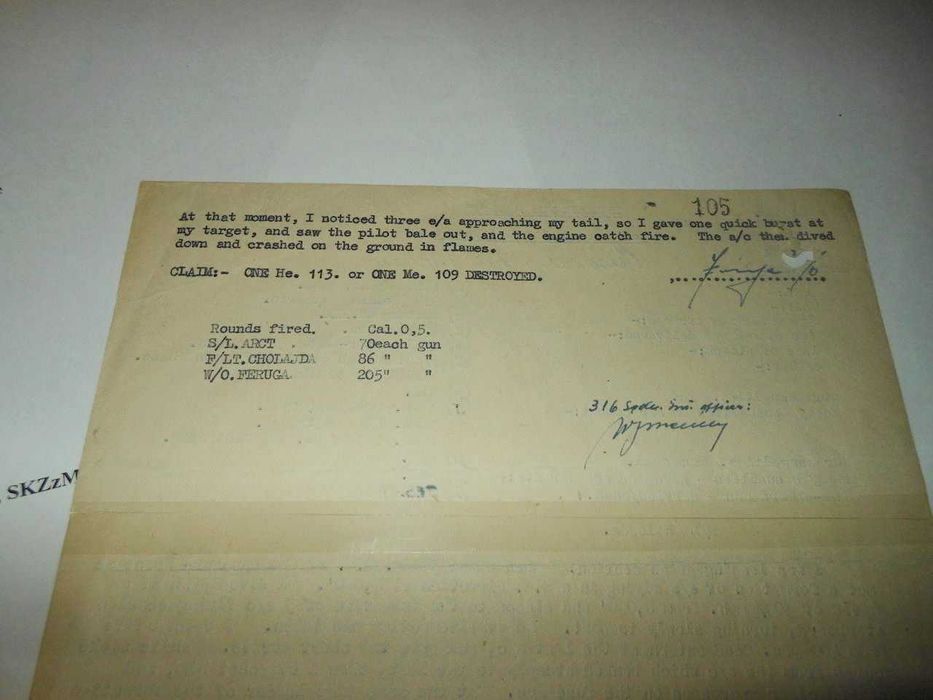 105
At that moment, I noticed three e/a approaching my tail, so I gave one quick burst at
my target, and saw the pilot bale out, and the engine catch fire. The a/c then dived
down and crashed on the ground in flames.
CLAIM:- ONE He. 113. or ONE Me. 109 DESTROYED.
Rounds fired. Cal.0,5.
S/L. ARCT 70each gun
F/LT. CHOLAJDA 86 " "
W/O. FERUGA 205" "
316 Sqdn. Int. officer:
SKZzM